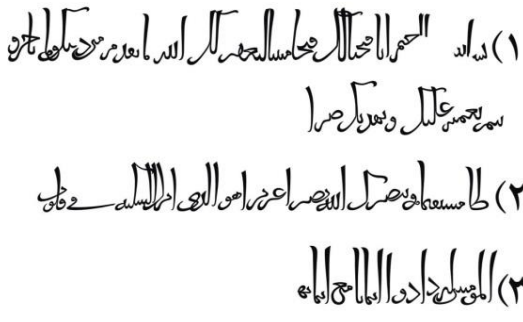 ١) انا فتحنا لك فتحا مبينا ليغفر لك الله ما تقدم من ذنبك وما تاخر و
يتم نعمته عليك ويهديك صرا
٢) طا مستقيما وينصرك الله نصرا عزيزا هو الذي انزل السكينه في قلوب
٣) المومنين ليزدادوا ايمانا مع